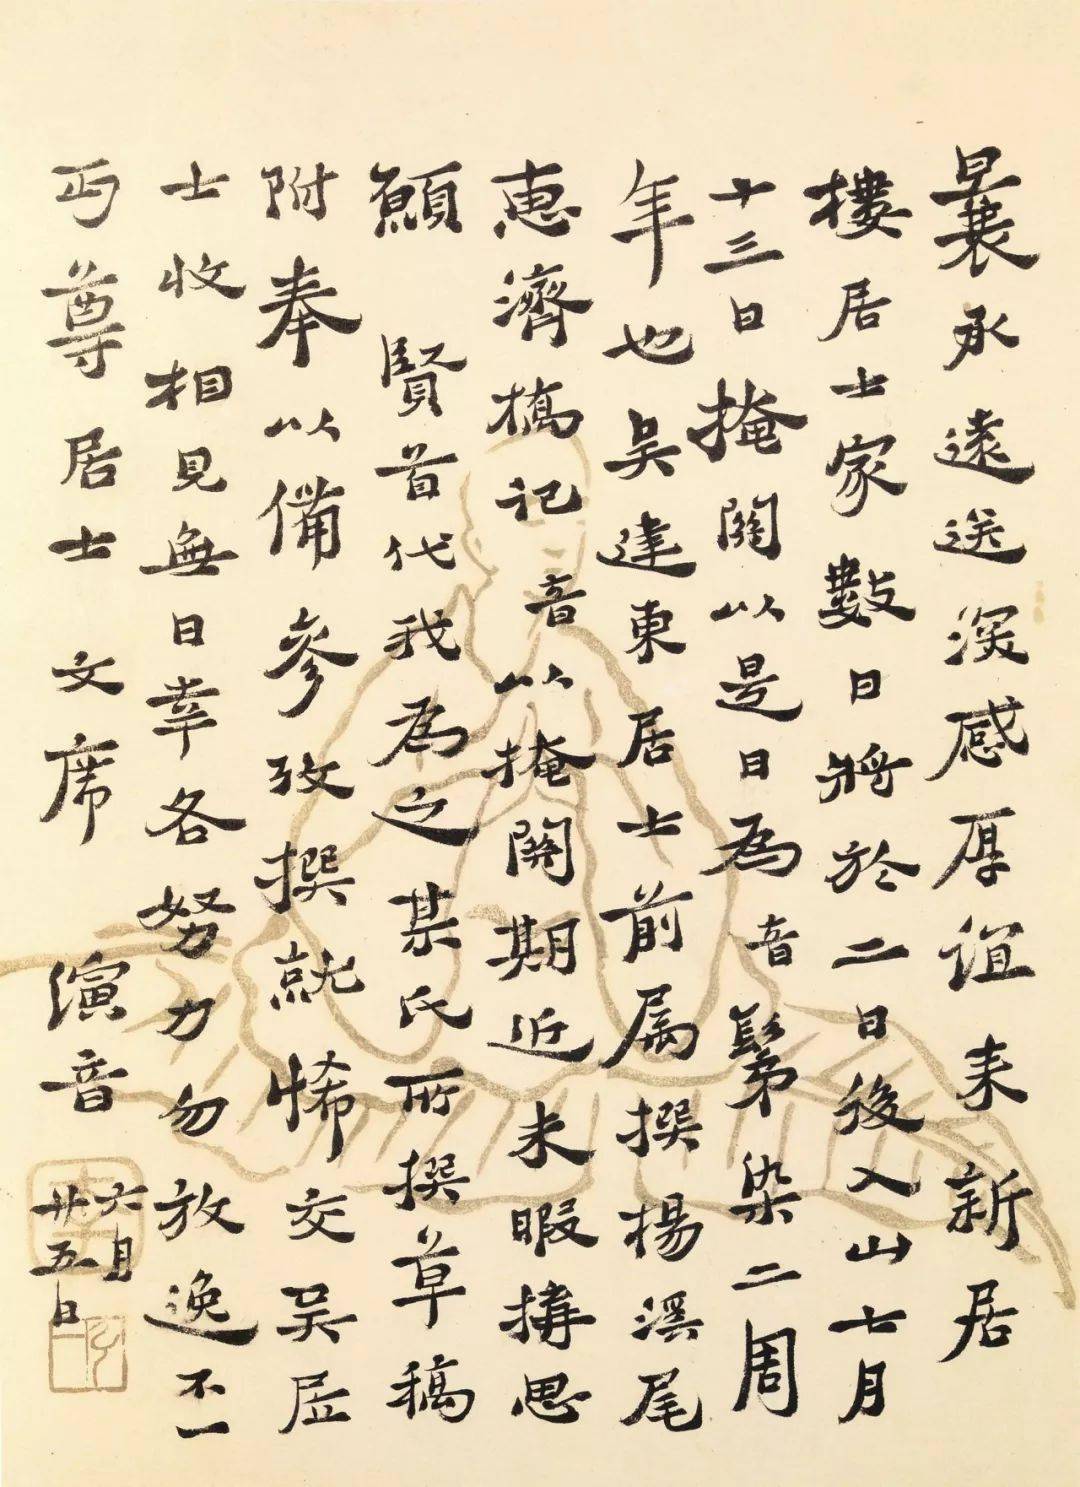 曩承遠送深感厚誼来新居
樓居士家數日將於二日後入山七月
十三日掩關以是日為音鬀染二周
年也吴建東居士前属撰楊溪尾
惠濟橋記音以掩關期近未暇搆思
願賢首代我為之某氏所撰草稿
附奉以備參攷撰就悕交吴凥
士收相見無日幸各努力勿放逸不一
丏尊居士文席 演音
六月
廿五日